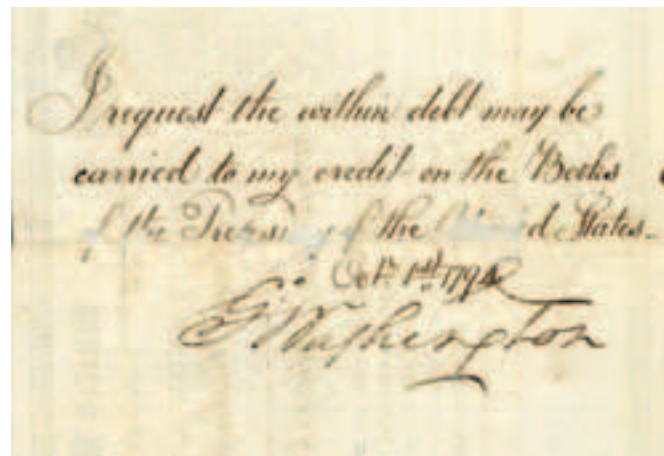 I request the within debt may be
carried to my credit on the Books
of the Treasury of the United States
Oct. 1st. 179
G. Washington